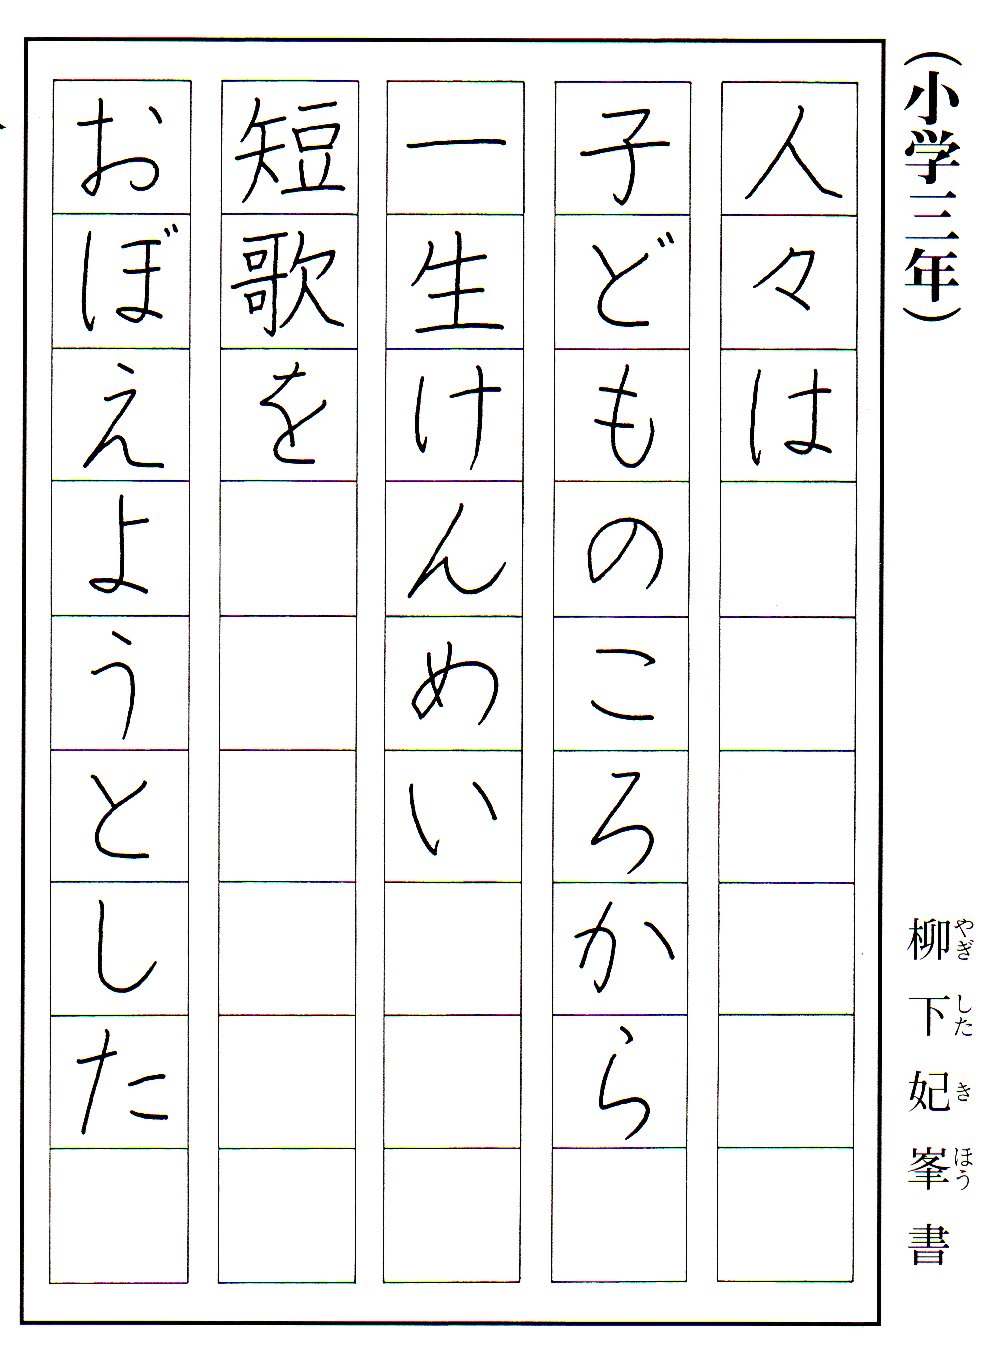 （小学三年）
柳下妃峯書
やぎしたきほう
人々は
子どものころから
一生けんめい
短歌を
おぼえようとした